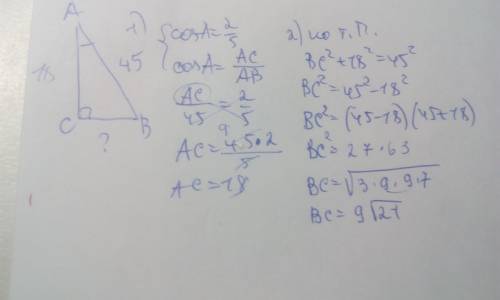 A
18
45
C
B
?
1) { cosA = 2/5
cosA = AC/AB
AC/45 = 2/5
AC = 45·2/5
9
AC = 18
2) по т.П.
BC² + 18² = 45²
BC² = 45² - 18²
BC² = (45-18)(45+18)
BC² = 27·63
BC = √3·9·9·7
BC = 9√21